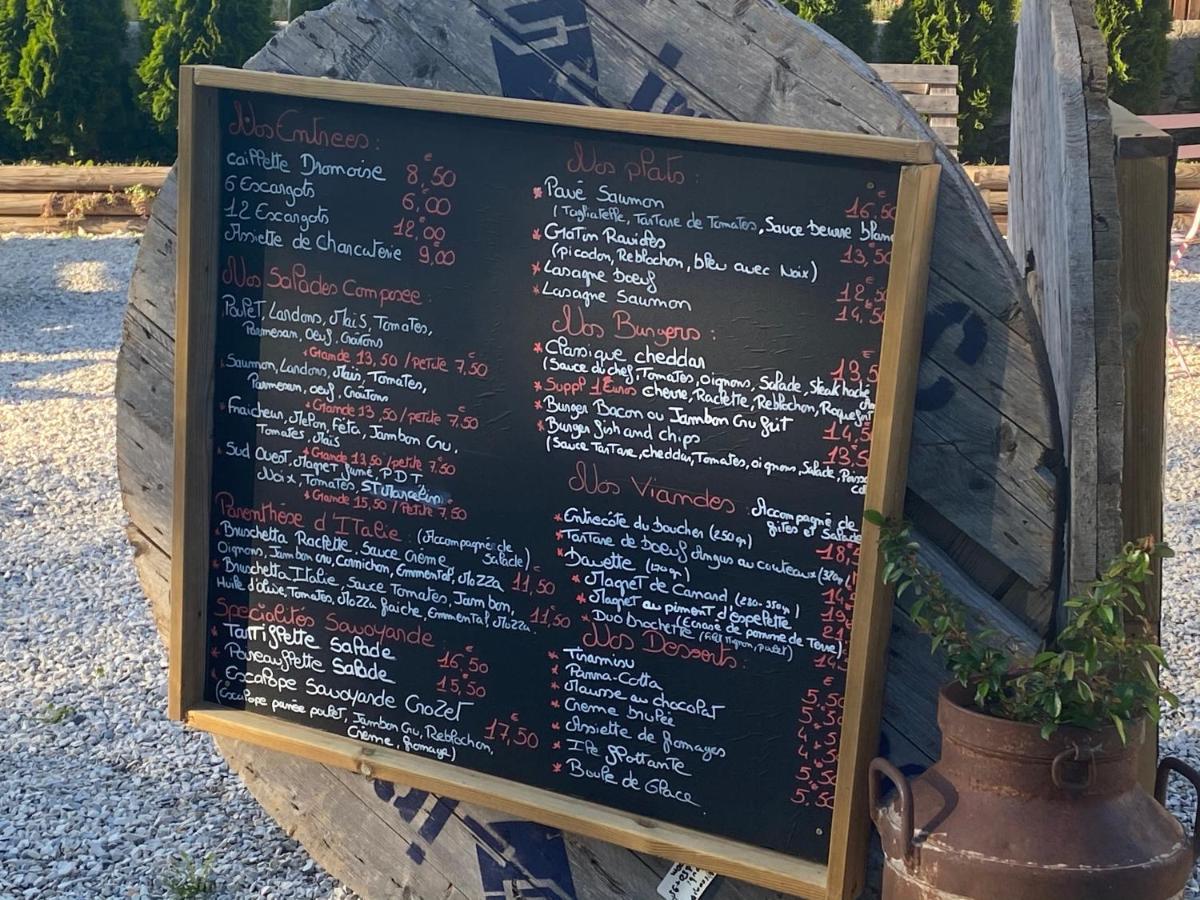 Nos Entrees :
caillette Dromoise 8€,50
6 Escargots 6€,00
12 Escargots 12€,00
Assiette de Charcuterie 9€,00
Nos Salades Composee :
Poulet, Lardons, Maïs, Tomates,
Parmesan, Oeuf, Croûtons
* Grande 13,50 / petite 7,50
Saumon, Lardons, Maïs, Tomates,
Parmesan, oeuf, Croûtons
* Grande 13,50 / petite 7,50
* Fraicheur, Melon, Féta, Jambon Cru,
Tomates, Maïs
* Grande 13,50 / petite 7,50
* Sud Ouest, Magret fumé, P.D.T,
Noix, Tomates, ST Marcellin
* Grande 15,50 / Petite 7,50
Parenthèse d'Italie : (Accompagnée de Salade)
* Bruschetta Raclette, Sauce Crème
Oignons, Jambon cru, Cornichon, Emmental, Mozza 11€,50
* Bruschetta Italie, Sauce Tomates, Jambon,
Huile d'Olive, Tomates, Mozza fraiche, Emmental, Mozza. 11€,50
Specialités Savoyande
* Tartiflette Salade 16€,50
* Poireauflette Salade 15€,50
* Escalope Savoyande Crozet
(Escalope panée poulet, Jambon Cru, Reblochon,
Crème, fromage) 17€,50
Nos plats :
* Pavé Saumon 16,50
(Tagliatelle, Tartare de Tomates, Sauce beurre blanc
* Gratin Ravioles 13,50
(picodon, Reblochon, bleu avec Noix)
* Lasagne boeuf 12,50
* Lasagne Saumon 14,50
Nos Burgers :
* Classique cheddar 13,5
(Sauce du chef, Tomates, oignons, Salade, steak haché
* Suppl 1 Euros chèvre, Raclette, Reblochon, Roquefort
* Burger Bacon ou Jambon Cru grit 14,5
* Burger fish and chips 13,5
(Sauce Tartare, cheddar, Tomates, oignons, Salade, Poisson
Nos Viandes : Accompagné de
frites et Salade
* Entrecôte du boucher (250gr) 18,
* Tartare de boeuf Angus au couteaux
* Bavette
* Magret de Canard (280-350gr)
* Magret au piment d'espelette
(Ecrasé de pomme de Terre)
* Duo brochette (Filet Mignon, poulet)
Nos Desserts :
* Tiramisu 5,50
* Panna-Cotta
* Mousse au chocolat
* Crème brulée
* Assiette de fromages
* Ile flottante 5,50
* Boule de Glace